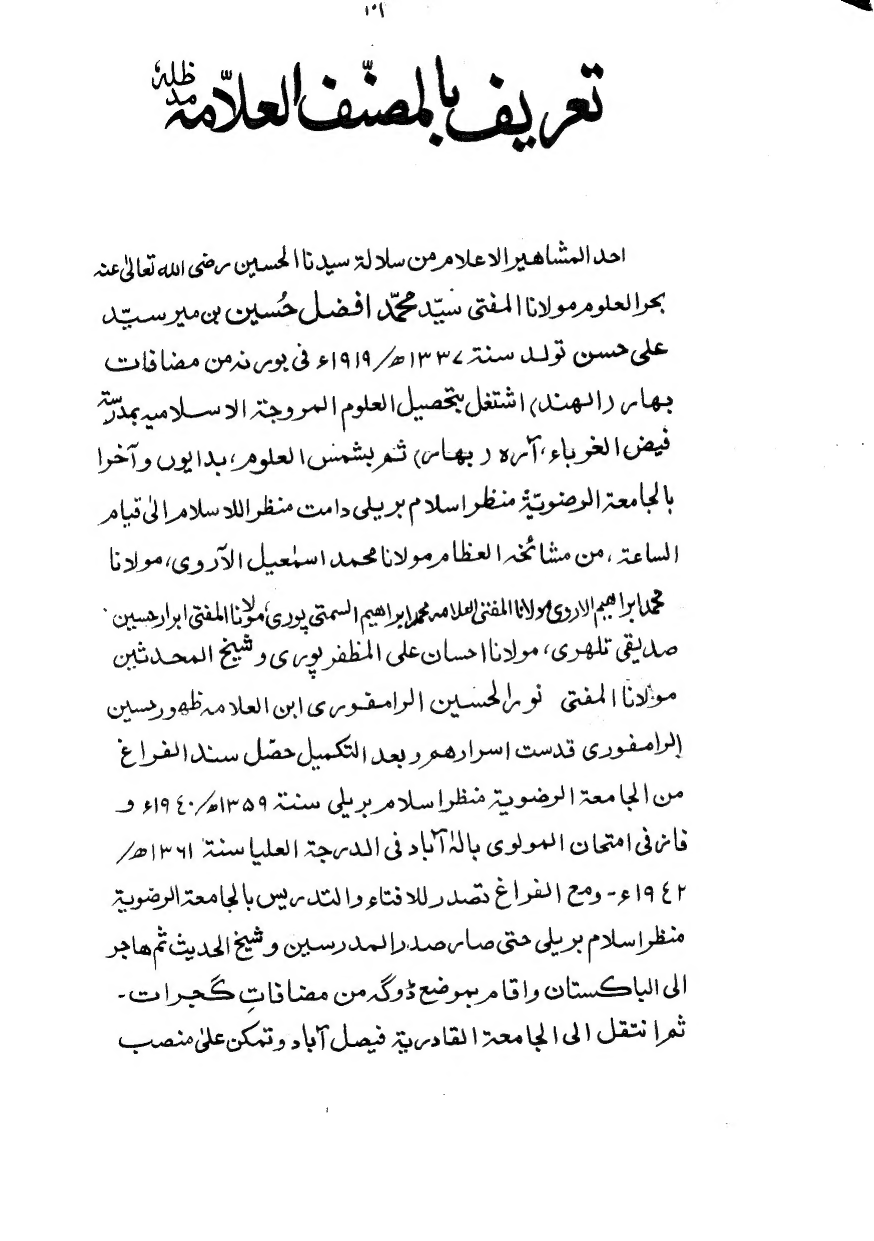 تعريف بالمصنّف العلاّمہ مدظلہٗ
احد المشاهير الاعلام من سلالة سيدنا الحسين رضى الله تعالىٰ عنه
بحر العلوم مولانا المفتى سيّد محمّد افضل حُسين بن مير سيّد
على حسن تولد سنة ١٣٣٧ھ/١٩١٩ء فى بورنه من مضافات
بهار (الهند) اشتغل بتحصيل العلوم المروجة الاسلاميه بمدرسة
فيض الغرباء، آره (بهار) ثم بشمس العلوم، بدايوں و آخرا
بالجامعة الرضويّة منظر اسلام بريلى دامت منظر اللاسلام الى قيام
الساعة، من مشائخه العظام مولانا محمد اسمٰعيل الآروى، مولانا
محمد ابراهيم الاروى مولانا المفتى العلامه محمد ابراهيم السمتى پورى، مولانا المفتى ابرار حسين
صديقى تلهرى، مولانا احسان على المظفر پورى و شيخ المحدثين
مولانا المفتى نور الحسين الرامفورى ابن العلامه ظهور حسين
الرامفورى قدست اسرارهم و بعد التكميل حصّل سند الفراغ
من الجامعة الرضوية منظر اسلام بريلى سنة ١٣٥٩ھ/١٩٤٠ء و
فاز فى امتحان المولوى بالہٰ آباد فى الدرجة العليا سنة ١٣٦١ھ/
١٩٤٢ء - ومع الفراغ تصدر للافتاء والتدريس بالجامعة الرضوية
منظر اسلام بريلى حتى صار صدر المدرسين و شيخ الحديث ثم هاجر
الى الباكستان و اقام بموضع ڈوگہ من مضافاتِ گجرات -
ثم انتقل الى الجامعة القادرية فيصل آباد و تمكن علىٰ منصب